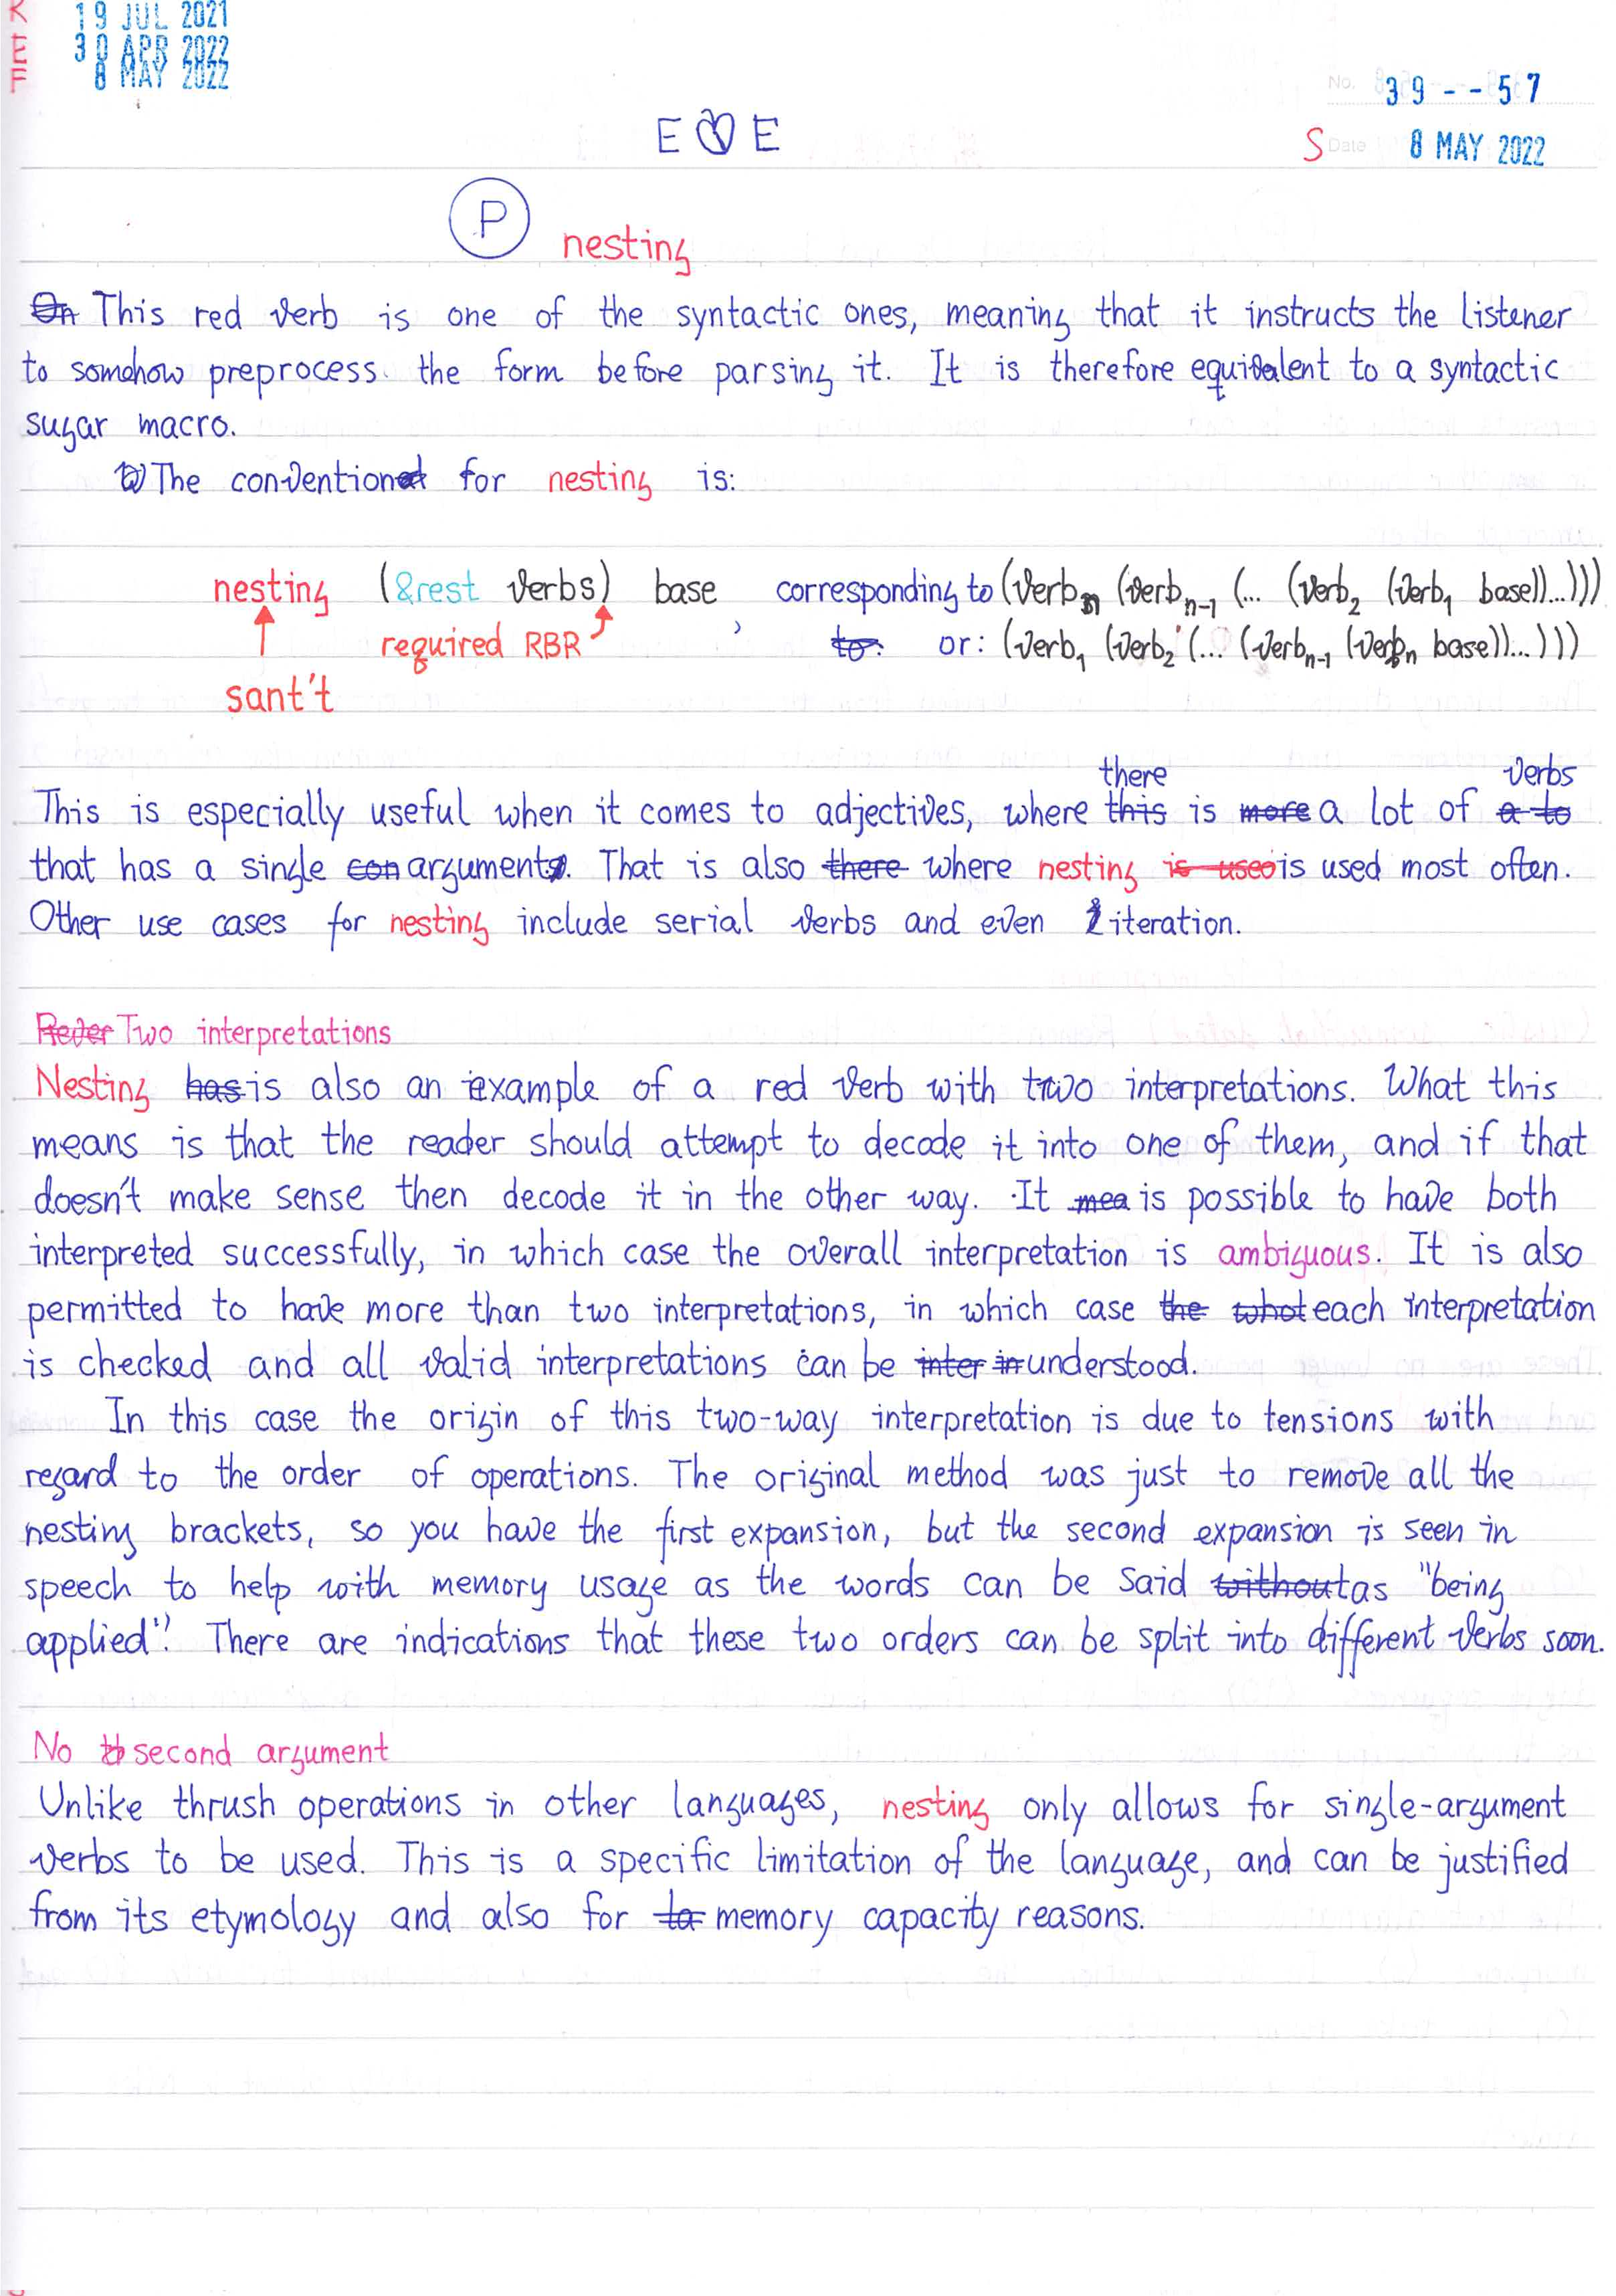 REF
19 JUL 2021
30 APR 2022
8 MAY 2022
No. 39--57
E E
S Date 8 MAY 2022
P nesting
On This red verb is one of the syntactic ones, meaning that it instructs the listener
to somehow preprocess the form before parsing it. It is therefore equivalent to a syntactic
sugar macro.
The convention for nesting is:
nesting (&rest verbs) base, corresponding to (verbn (verbn-1 (... (verb2 (verb1 base))...)))
required RBR to: or: (verb1 (verb2 (... (verbn-1 (verbn base))...)))
sant't
there verbs
This is especially useful when it comes to adjectives, where this is more a lot of a to
that has a single con argument. That is also there where nesting is use is used most often.
Other use cases for nesting include serial verbs and even iteration.
Rever Two interpretations
Nesting has is also an example of a red verb with two interpretations. What this
means is that the reader should attempt to decode it into one of them, and if that
doesn't make sense then decode it in the other way. It mea is possible to have both
interpreted successfully, in which case the overall interpretation is ambiguous. It is also
permitted to have more than two interpretations, in which case the whot each interpretation
is checked and all valid interpretations can be inter in understood.
In this case the origin of this two-way interpretation is due to tensions with
regard to the order of operations. The original method was just to remove all the
nesting brackets, so you have the first expansion, but the second expansion is seen in
speech to help with memory usage as the words can be said without as "being
applied". There are indications that these two orders can be split into different verbs soon.
No second argument
Unlike thrush operations in other languages, nesting only allows for single-argument
verbs to be used. This is a specific limitation of the language, and can be justified
from its etymology and also for to memory capacity reasons.